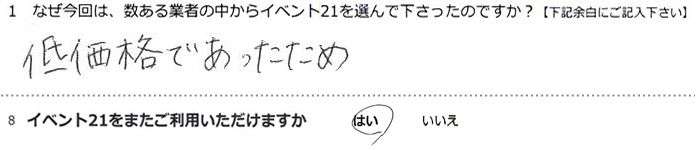 1 なぜ今回は、数ある業者の中からイベント21を選んで下さったのですか？【下記余白にご記入下さい】
低価格であったため
8 イベント21をまたご利用いただけますか はい いいえ